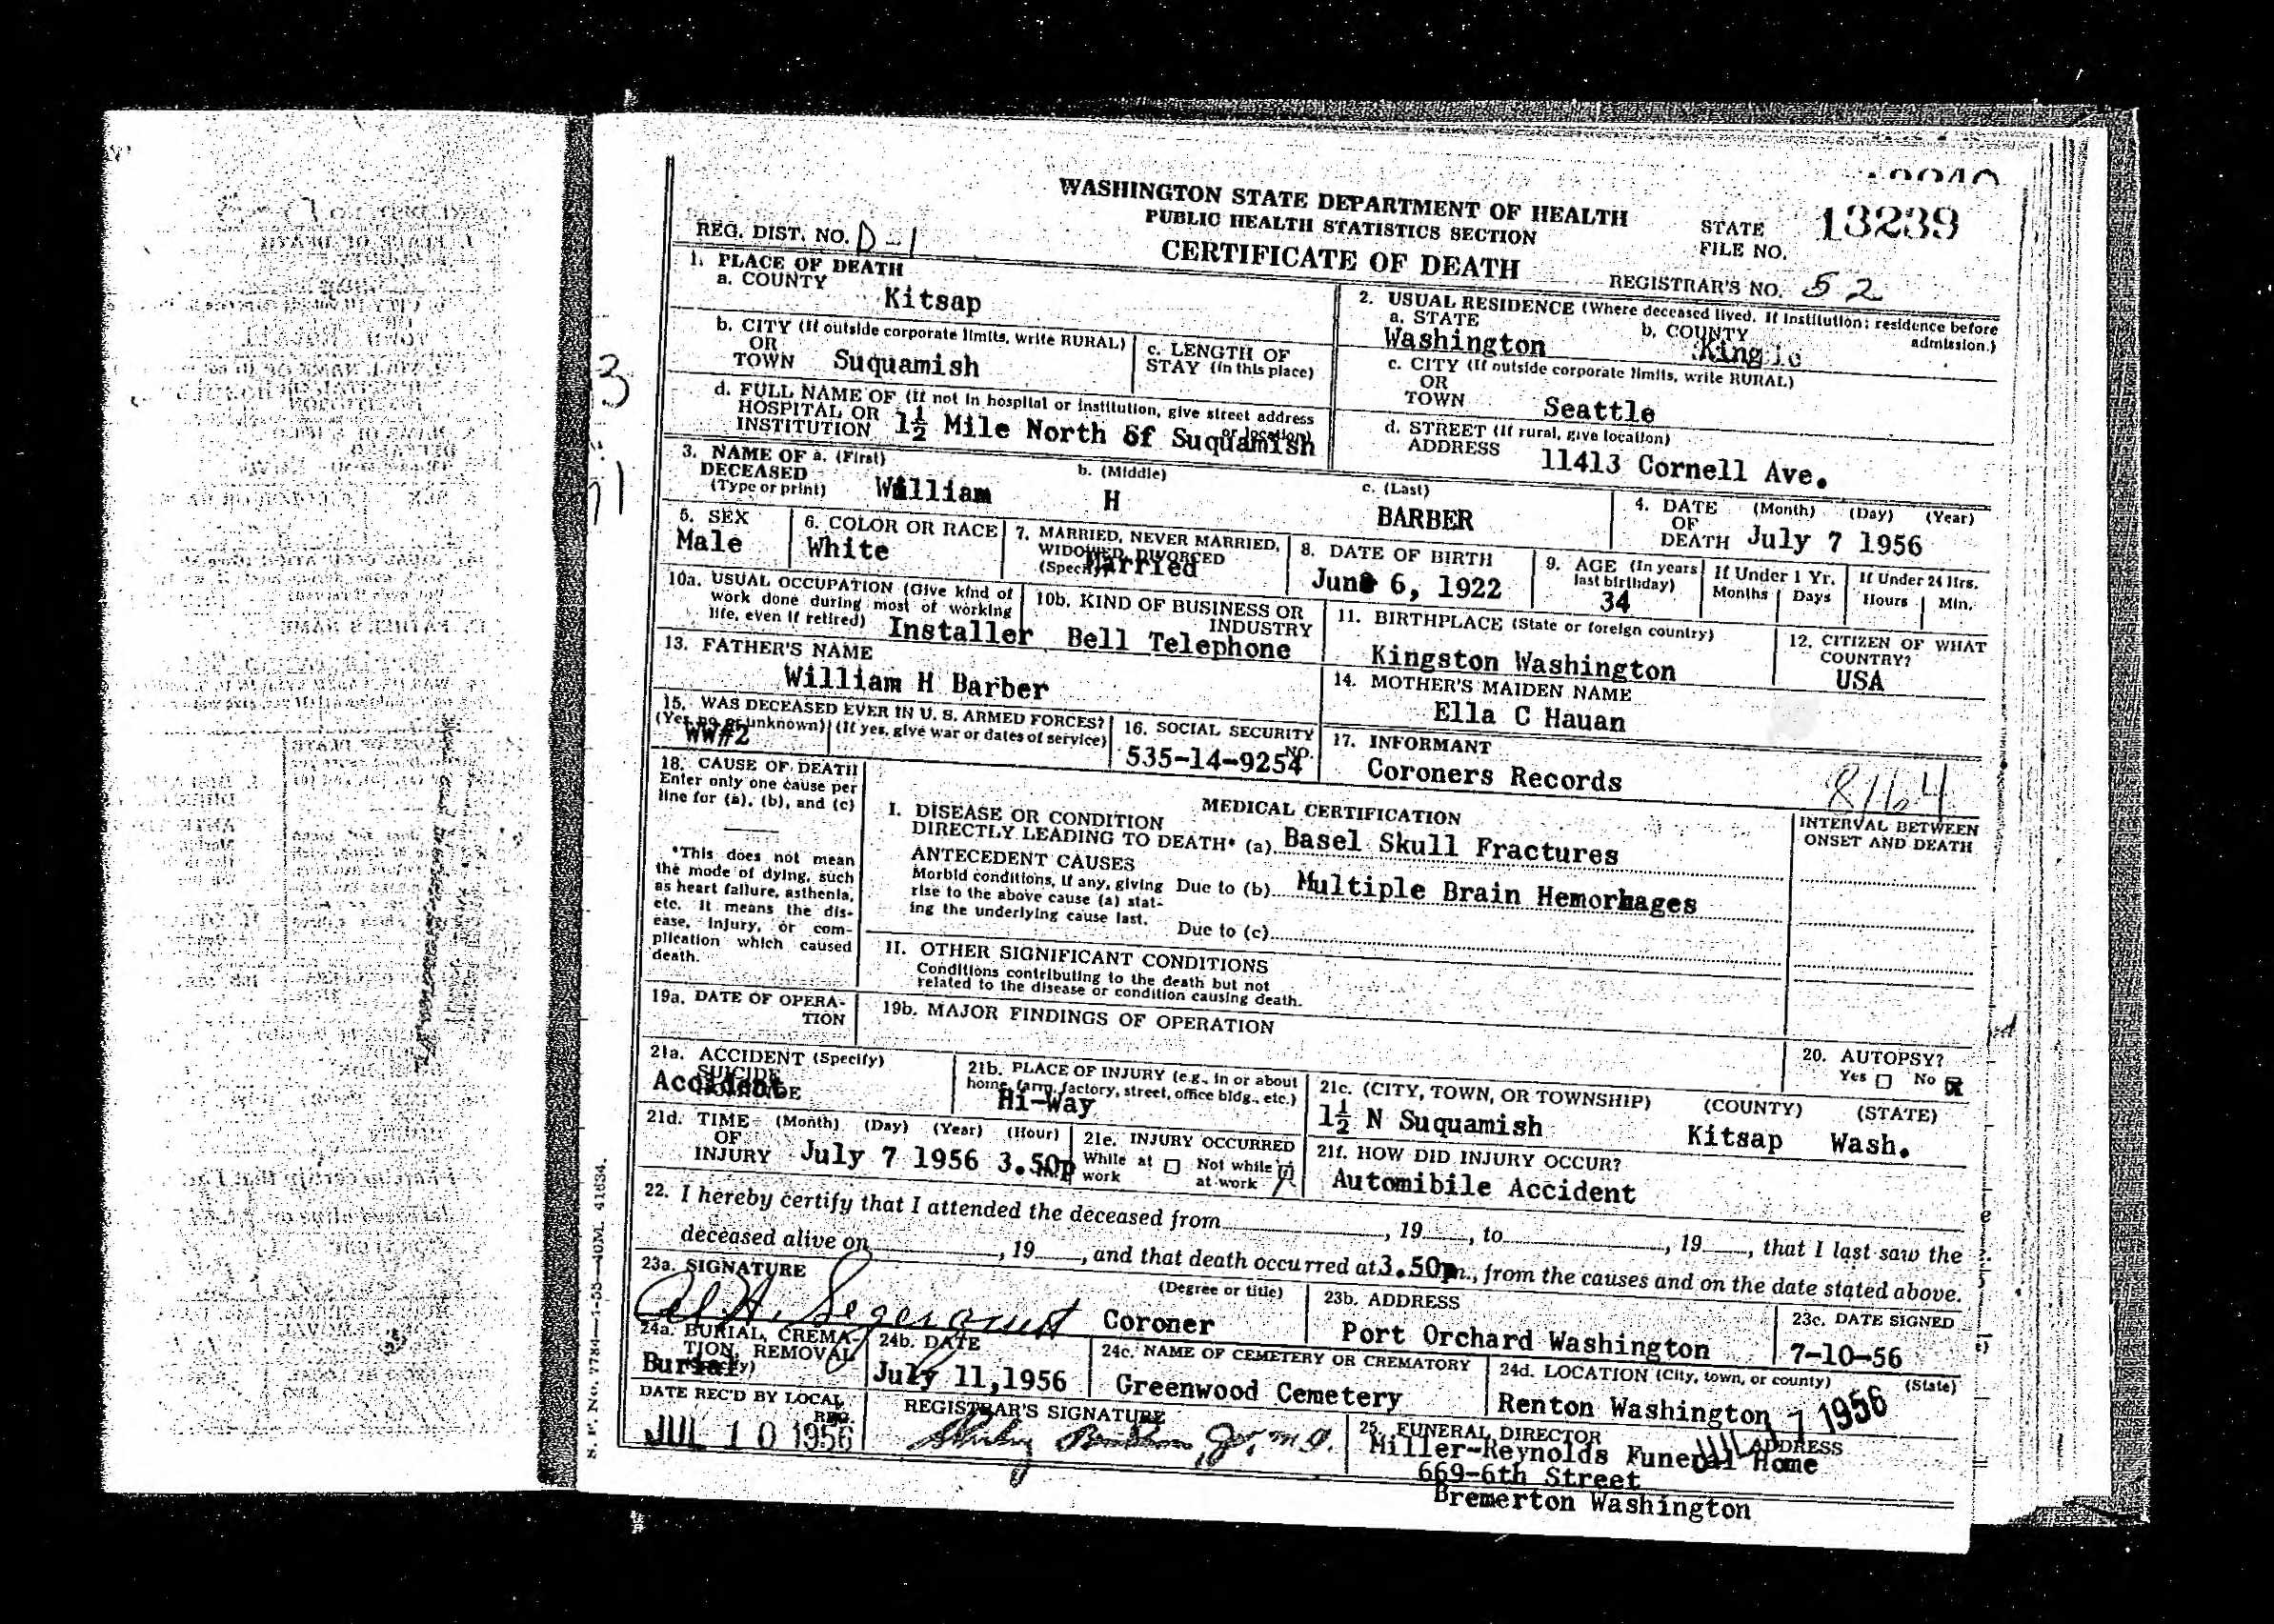 WASHINGTON STATE DEPARTMENT OF HEALTH
PUBLIC HEALTH STATISTICS SECTION
CERTIFICATE OF DEATH
STATE FILE NO. 13239
REG. DIST. NO. D-1
REGISTRAR'S NO. 52
1. PLACE OF DEATH
a. COUNTY
Kitsap
b. CITY (If outside corporate limits, write RURAL)
OR
TOWN Suquamish
c. LENGTH OF
STAY (in this place)
d. FULL NAME OF (If not in hospital or institution, give street address
or location)
HOSPITAL OR
INSTITUTION 1½ Mile North of Suquamish
2. USUAL RESIDENCE (Where deceased lived. If institution: residence before
admission.)
a. STATE
Washington
b. COUNTY
King
c. CITY (If outside corporate limits, write RURAL)
OR
TOWN Seattle
d. STREET (If rural, give location)
ADDRESS 11413 Cornell Ave.
3. NAME OF
DECEASED
(Type or print)
a. (First)
William
b. (Middle)
H
c. (Last)
BARBER
4. DATE (Month) (Day) (Year)
OF
DEATH July 7 1956
5. SEX
Male
6. COLOR OR RACE
White
7. MARRIED, NEVER MARRIED,
WIDOWED, DIVORCED
(Specify)
Married
8. DATE OF BIRTH
June 6, 1922
9. AGE (In years
last birthday)
34
If Under 1 Yr.
Months Days
If Under 24 Hrs.
Hours Min.
10a. USUAL OCCUPATION (Give kind of
work done during most of working
life, even if retired) Installer
10b. KIND OF BUSINESS OR
INDUSTRY
Bell Telephone
11. BIRTHPLACE (State or foreign country)
Kingston Washington
12. CITIZEN OF WHAT
COUNTRY?
USA
13. FATHER'S NAME
William H Barber
14. MOTHER'S MAIDEN NAME
Ella C Hauan
15. WAS DECEASED EVER IN U. S. ARMED FORCES?
(Yes, no or unknown) (If yes, give war or dates of service)
WW#2
16. SOCIAL SECURITY
NO.
535-14-9254
17. INFORMANT
Coroners Records
18. CAUSE OF DEATH
Enter only one cause per
line for (a), (b), and (c)
*This does not mean
the mode of dying, such
as heart failure, asthenia,
etc. It means the dis-
ease, injury, or com-
plication which caused
death.
MEDICAL CERTIFICATION
I. DISEASE OR CONDITION
DIRECTLY LEADING TO DEATH* (a) Basel Skull Fractures
ANTECEDENT CAUSES
Morbid conditions, if any, giving
rise to the above cause (a) stat-
ing the underlying cause last.
Due to (b) Multiple Brain Hemorhages
Due to (c)
II. OTHER SIGNIFICANT CONDITIONS
Conditions contributing to the death but not
related to the disease or condition causing death.
8164
INTERVAL BETWEEN
ONSET AND DEATH
19a. DATE OF OPERA-
TION
19b. MAJOR FINDINGS OF OPERATION
20. AUTOPSY?
Yes No
21a. ACCIDENT (Specify)
SUICIDE
HOMICIDE
Accident
21b. PLACE OF INJURY (e.g., in or about
home, farm, factory, street, office bldg., etc.)
Hi-Way
21c. (CITY, TOWN, OR TOWNSHIP) (COUNTY) (STATE)
1½ N Suquamish Kitsap Wash.
21d. TIME (Month) (Day) (Year) (Hour)
OF
INJURY July 7 1956 3.50p m.
21e. INJURY OCCURRED
While at work Not while at work
21f. HOW DID INJURY OCCUR?
Automibile Accident
22. I hereby certify that I attended the deceased from , 19 , to , 19 , that I last saw the
deceased alive on , 19 , and that death occurred at 3.50p m., from the causes and on the date stated above.
23a. SIGNATURE
(Degree or title)
Coroner
23b. ADDRESS
Port Orchard Washington
23c. DATE SIGNED
7-10-56
24a. BURIAL, CREMA-
TION, REMOVAL
(Specify)
Burial
24b. DATE
July 11,1956
24c. NAME OF CEMETERY OR CREMATORY
Greenwood Cemetery
24d. LOCATION (City, town, or county) (State)
Renton Washington
DATE REC'D BY LOCAL
REG.
JUL 10 1956
REGISTRAR'S SIGNATURE
25. FUNERAL DIRECTOR ADDRESS
Miller-Reynolds Funeral Home
669-6th Street
Bremerton Washington
JUL 17 1956